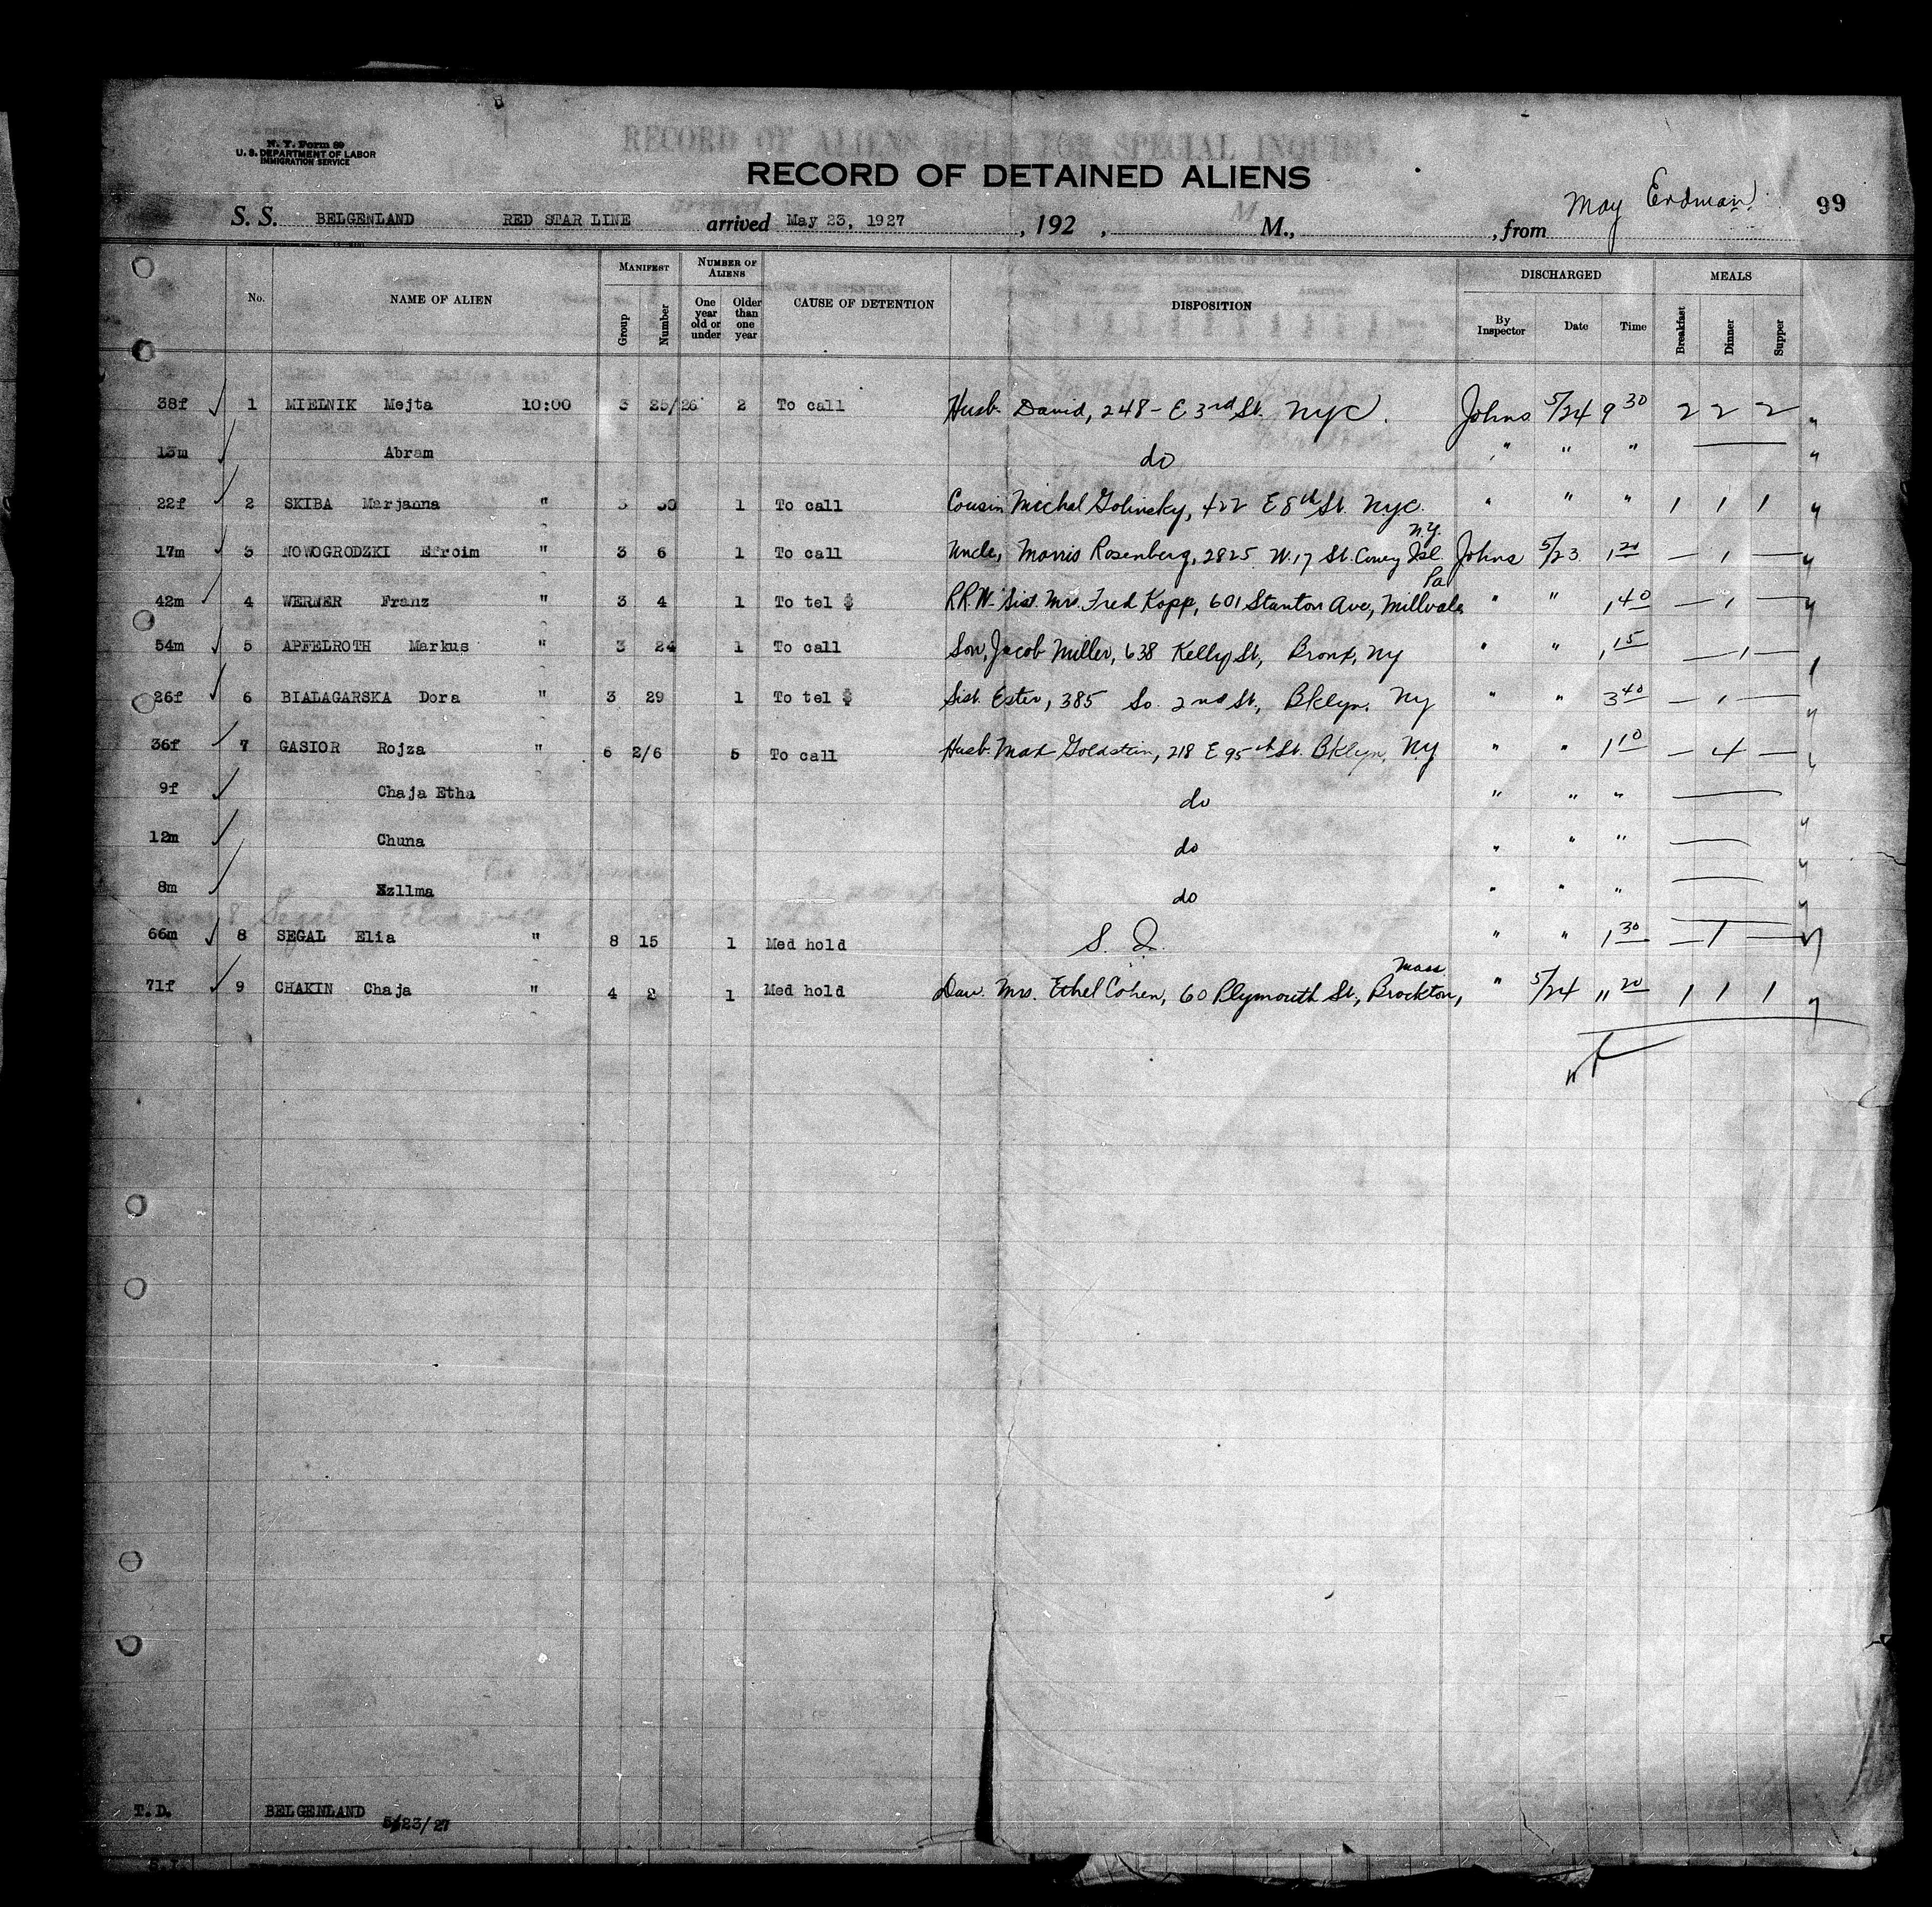 N. Y. Form 89
U. S. DEPARTMENT OF LABOR
IMMIGRATION SERVICE
RECORD OF ALIENS HELD FOR SPECIAL INQUIRY
RECORD OF DETAINED ALIENS
May Erdman
99
S. S. BELGENLAND RED STAR LINE arrived May 23, 1927, 192 , M., , from
No. NAME OF ALIEN MANIFEST Group Number NUMBER OF ALIENS One year old or under Older than one year CAUSE OF DETENTION DISPOSITION DISCHARGED By Inspector Date Time MEALS Breakfast Dinner Supper
38f 1 MIELNIK Mejta 10:00 3 25/26 2 To call Husb. David, 248 - E 3rd St. NYC. Johns 5/24 9 30 2 2 2
13m Abram do " " "
22f 2 SKIBA Marjanna " 3 30 1 To call Cousin Michal Golinsky, 422 E 8th St. NYC. " " " 1 1 1
17m 3 NOWOGRODZKI Efroim " 3 6 1 To call Uncle, Morris Rosenberg, 2825 W. 17 St. Coney Isl. N.Y. Johns 5/23 1 20 — 1 —
42m 4 WERNER Franz " 3 4 1 To tel $ RRN- Sist. Mrs. Fred Kopp, 601 Stanton Ave, Millvale Pa " " 1 40 — 1 —
54m 5 APFELROTH Markus " 3 24 1 To call Son, Jacob Miller, 638 Kelly St, Bronx, NY " " 1 15 — 1 —
26f 6 BIALAGARSKA Dora " 3 29 1 To tel $ Sist. Ester, 385 So. 2nd St., Bklyn, NY " " 3 40 — 1 —
36f 7 GASIOR Rojza " 6 2/6 5 To call Husb. Max Goldstein, 218 E 95th St. Bklyn, NY " " 1 10 — 4 —
9f Chaja Etha do " " "
12m Chuna do " " "
8m Xzllma do " " "
66m 8 SEGAL Elia " 8 15 1 Med hold S. I. " " 1 30 — 1 —
71f 9 CHAKIN Chaja " 4 2 1 Med hold Dau. Mrs. Ethel Cohen, 60 Plymouth St., Brockton, Mass. " 5/24 11 20 1 1 1
T. D. BELGENLAND
5/23/27